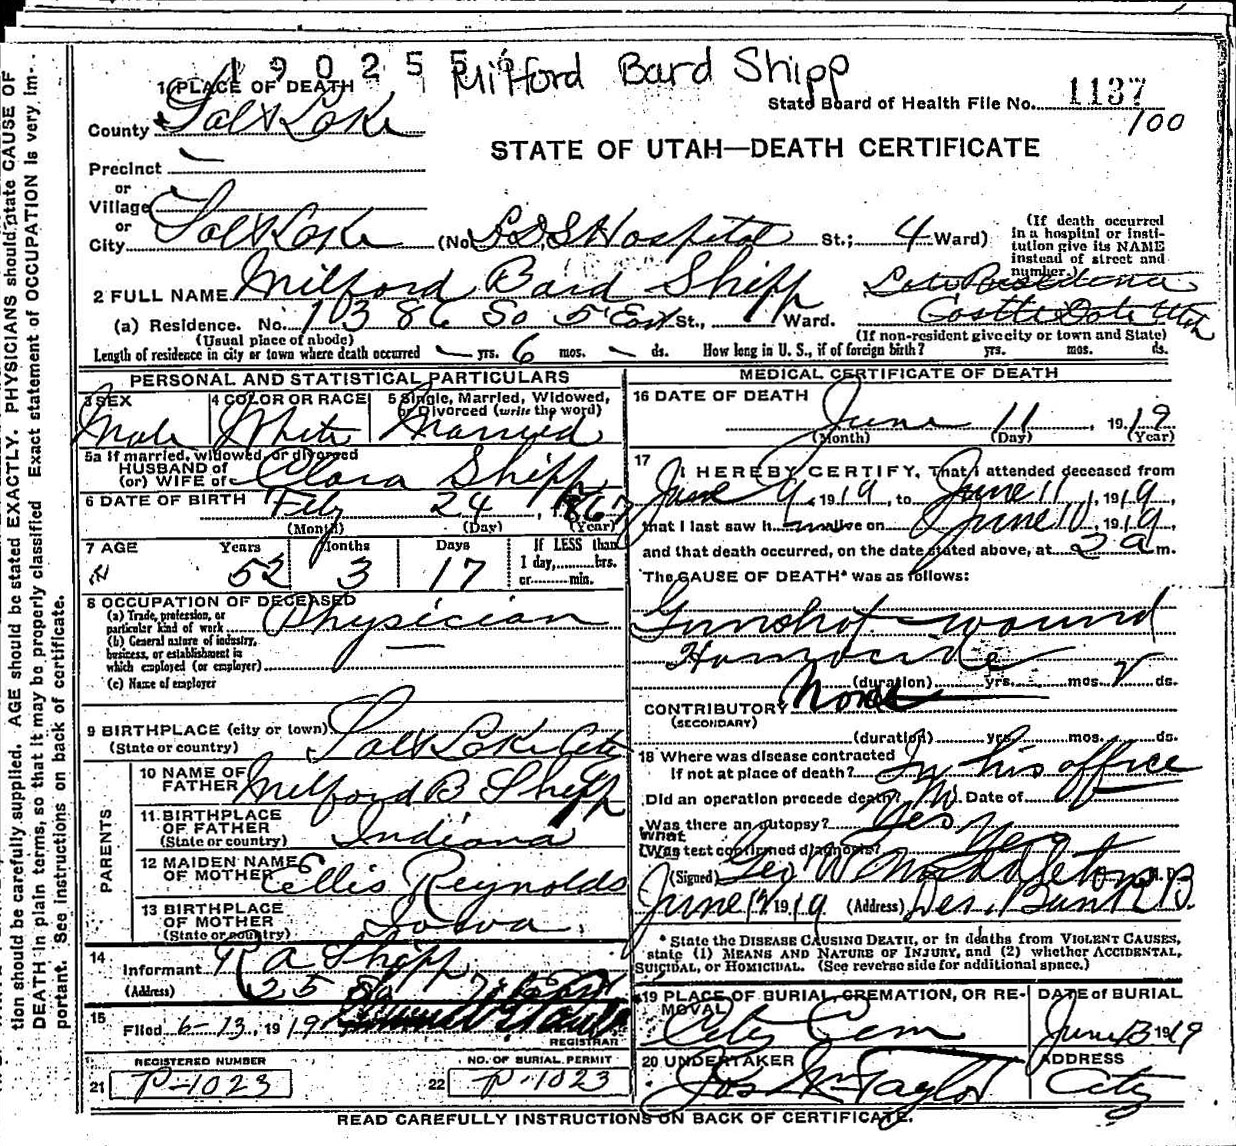 tion should be carefully supplied. AGE should be stated EXACTLY. PHYSICIANS should state CAUSE OF
DEATH in plain terms, so that it may be properly classified. Exact statement of OCCUPATION is very im-
portant. See instructions on back of certificate.
190255
Milford Bard Shipp
1 PLACE OF DEATH
State Board of Health File No. 1137
100
County Salt Lake
STATE OF UTAH—DEATH CERTIFICATE
Precinct
or
Village
or
City Salt Lake (No. L.D.S Hospital St.; 4 Ward)
(If death occurred
in a hospital or insti-
tution give its NAME
instead of street and
number.)
2 FULL NAME Milford Bard Shipp
Castle Gate Utah
(a) Residence. No. 1386 So 5 East St., Ward.
(Usual place of abode) (If non-resident give city or town and State)
Length of residence in city or town where death occurred yrs. 6 mos. ds. How long in U. S., if of foreign birth? yrs. mos. ds.
PERSONAL AND STATISTICAL PARTICULARS
3 SEX
Male
4 COLOR OR RACE
White
5 Single, Married, Widowed,
or Divorced (write the word)
Married
5a If married, widowed, or divorced
HUSBAND of
(or) WIFE of Clara Shipp
6 DATE OF BIRTH Feby 24, 1867
(Month) (Day) (Year)
7 AGE Years Months Days If LESS than
52 3 17 1 day, hrs.
or min.
8 OCCUPATION OF DECEASED
(a) Trade, profession, or
particular kind of work Physician
(b) General nature of industry,
business, or establishment in
which employed (or employer)
(c) Name of employer
9 BIRTHPLACE (city or town) Salt Lake City
(State or country)
PARENTS
10 NAME OF
FATHER Milford B Shipp
11 BIRTHPLACE
OF FATHER
(State or country) Indiana
12 MAIDEN NAME
OF MOTHER Ellis Reynolds
13 BIRTHPLACE
OF MOTHER
(State or country) Iowa
14
Informant R A Shipp
(Address) 25 So 7 East
15
Filed 6-13, 1919
REGISTRAR
REGISTERED NUMBER
21 P-1023
NO. OF BURIAL PERMIT
22 P-1023
MEDICAL CERTIFICATE OF DEATH
16 DATE OF DEATH
June 11, 1919
(Month) (Day) (Year)
17
I HEREBY CERTIFY, That I attended deceased from
June 9, 1919, to June 11, 1919,
that I last saw h im alive on June 10, 1919,
and that death occurred, on the date stated above, at 2 a m.
The CAUSE OF DEATH* was as follows:
Gunshot wound
Homocide
(duration) yrs. mos. 2 ds.
CONTRIBUTORY None
(SECONDARY)
(duration) yrs. mos. ds.
18 Where was disease contracted
If not at place of death? In his office
Did an operation precede death? Date of
Was there an autopsy? Yes
What
(Was test confirmed diagnosis? Yes
(Signed) Geo W Middleton M. D.
June 12 1919 (Address) Des. Bank B.
* State the DISEASE CAUSING DEATH, or in deaths from VIOLENT CAUSES,
state (1) MEANS AND NATURE OF INJURY, and (2) whether ACCIDENTAL,
SUICIDAL, or HOMICIDAL. (See reverse side for additional space.)
19 PLACE OF BURIAL, CREMATION, OR RE-
MOVAL
City Cem
DATE of BURIAL
June 13 1919
20 UNDERTAKER
Jos Wm Taylor
ADDRESS
City
READ CAREFULLY INSTRUCTIONS ON BACK OF CERTIFICATE.